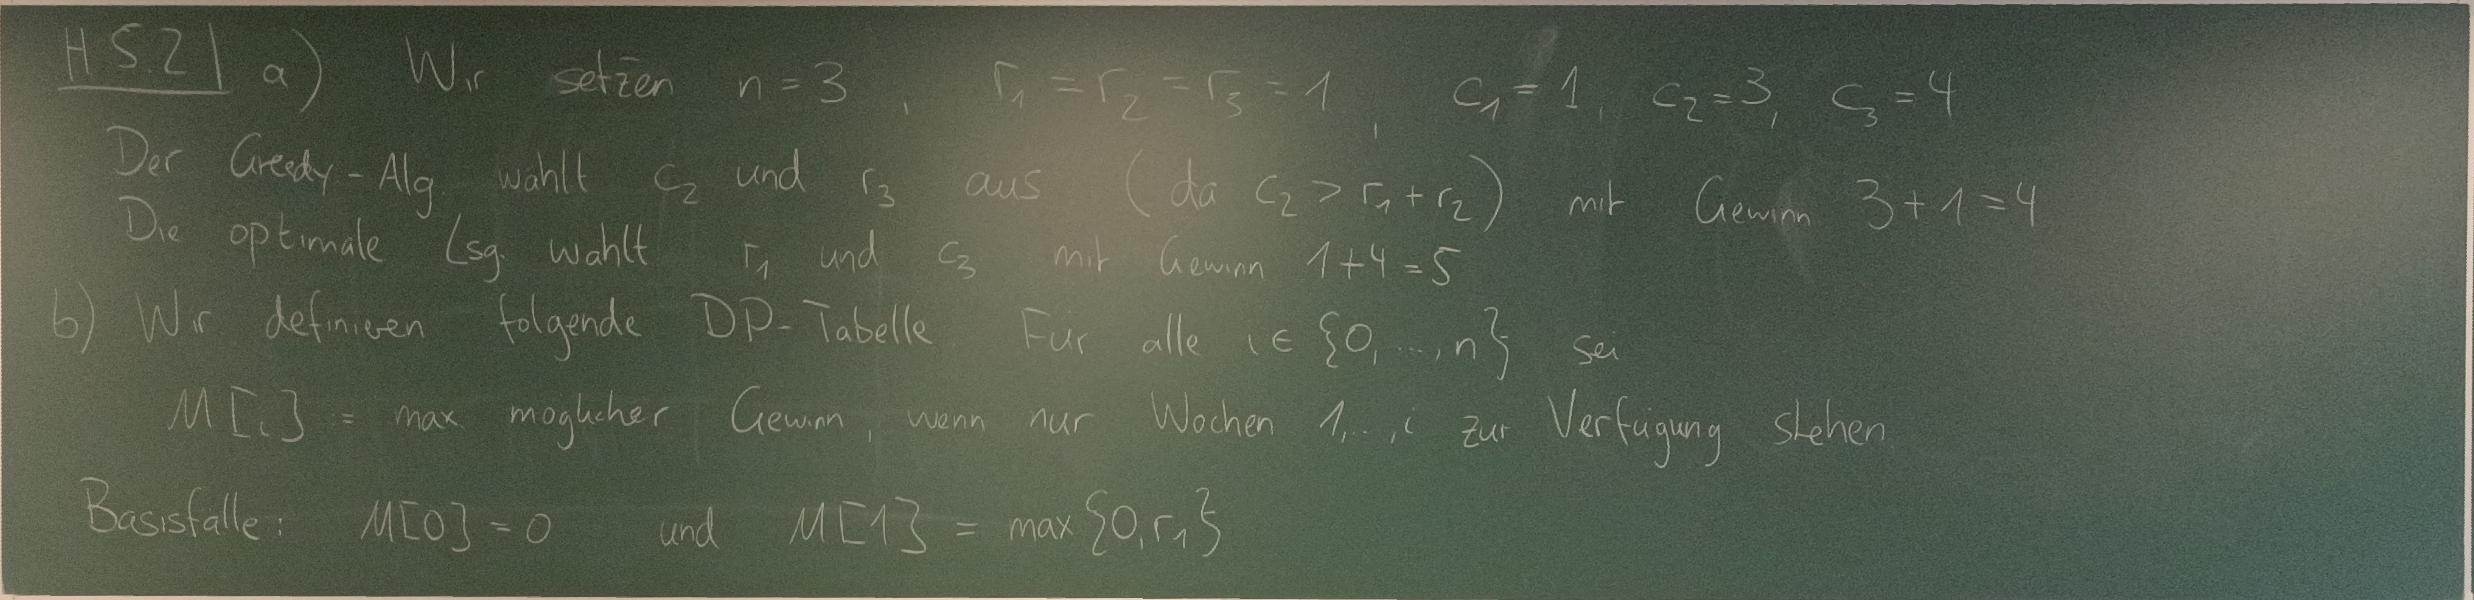 H 5.2 a) Wir setzen n = 3, r₁ = r₂ = r₃ = 1, c₁ = 1, c₂ = 3, c₃ = 4
Der Greedy-Alg. wählt c₂ und r₃ aus (da c₂ > r₁ + r₂) mit Gewinn 3 + 1 = 4
Die optimale Lsg. wählt r₁ und c₃ mit Gewinn 1 + 4 = 5
b) Wir definieren folgende DP-Tabelle. Für alle i ∈ {0, ..., n} sei
M[i] = max möglicher Gewinn, wenn nur Wochen 1,..,i zur Verfügung stehen.
Basisfälle: M[0] = 0 und M[1] = max{0, r₁}